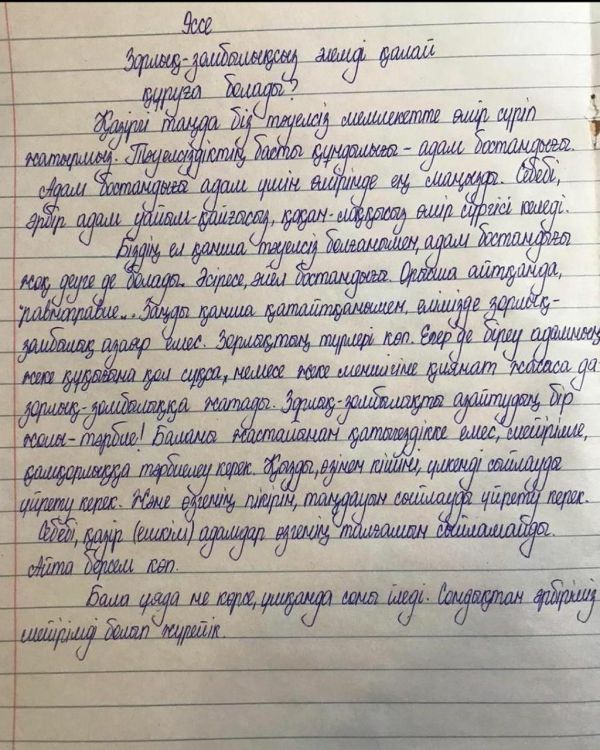 Эссе
Зорлық-зомбылықсыз әлемді қалай
құруға болады?
Қазіргі таңда біз тәуелсіз мемлекетте өмір сүріп
жатырмыз. Тәуелсіздіктің басты құндылығы - адам бостандығы.
Адам бостандығы адам үшін өмірінде ең маңызды. Себебі,
әрбір адам уайым-қайғысыз, қоқан-лоққысыз өмір сүргісі келеді.
Біздің ел қанша тәуелсіз болғанымен, адам бостандығы
жоқ деуге де болады. Әсіресе, әйел бостандығы. Орысша айтқанда,
"равноправие... Заңды қанша қатайтқанымен, елімізде зорлық-
зомбылық азаяр емес. Зорлықтың түрлері көп. Егер де біреу адамның
жеке құқығына қол сұқса, немесе жеке меншігіне қиянат жасаса да
зорлық-зомбылыққа жатады. Зорлық-зомбылықты азайтудың бір
жолы - тәрбие! Баланы жастайынан қатыгездікке емес, мейірімге,
қамқорлыққа тәрбиелеу керек. Қызды, өзінен кішіні, үлкенді сыйлауды
үйрету керек. Және өзгенің пікірін, таңдауын сыйлауды үйрету керек.
Себебі, қазір (ешкім) адамдар өзгенің талғамын сыйламайды.
Айта берсем көп.
Бала ұяда не көрсе, ұшқанда соны іледі. Сондықтан әрбіріміз
мейірімді болып жүрейік.